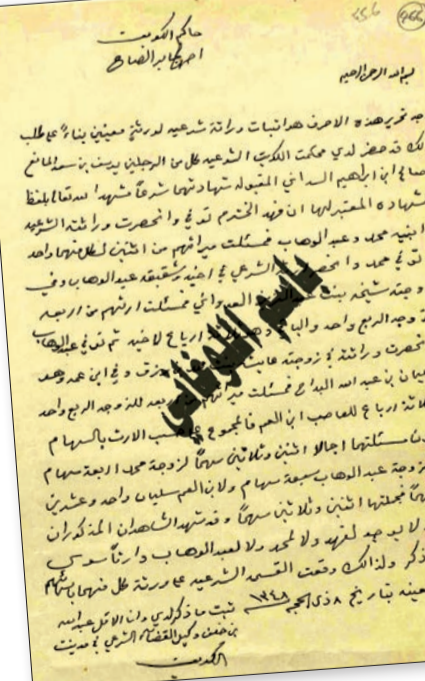 ٤٥٦ ٩٥٥
حاكم الكويت
احمد الجابر الصباح
بسم الله الرحمن الرحيم
تحرير هذه الاحرف هو اثبات وراثة شرعيه لورثة معينين بناءً على طلب
لك قد حضر لدي محكمة الكويت الشرعيه كل من الرجلين يوسف بن سعد المانع
صالح ابن ابراهيم المقبوله شهادتهما شرعاً وشهدا لله تعالى بلفظ
شهاده المعتبر لها ان فهد الخترم توفي وانحصرت وراثته الشرعيه
ابنيه محمد وعبدالوهاب فمسئلت ميراثهم من اثنين لكل منهما واحد
توفي محمد وانحصر الشرعي في اخيه وشقيقه عبدالوهاب وفي
وجته شيخه بنت فمسئلت ارثهم من اربعه
وجه الربع واحد والباقي ارباع لاخيه ثم توفي عبدالوهاب
نحصرت وراثته في زوجته وفي ابن عمه وهو
ليمان بن عبدالله البداح فمسئلت للزوجه الربع واحد
لاثة ارباع للعاصب ابن العم فالمجموع حسب الارث بالسهام
مسئلتها اجمالا اثنين وثلاثين سهماً لزوجة محمد اربعة سهام
زوجة عبدالوهاب سبعة سهام ولابن العم سليمان واحد وعشرين
هماً فجملتها اثنين وثلاثين سهماً وقد شهد الشاهدان المذكوران
لا يوجد لفهد ولا لمحمد ولا لعبدالوهاب وارثاً سوى
ذكر ولذالك وقعت القسمه الشرعيه على ورثة كل منهما بسهامهم
معينه بتاريخ ٨ ذي الحجه ١٣٤٨ ثبت ما ذكر لدي وانا الاقل عبدالله
بن خلف وكيل القضاء الشرعي في مدينة
الكويت